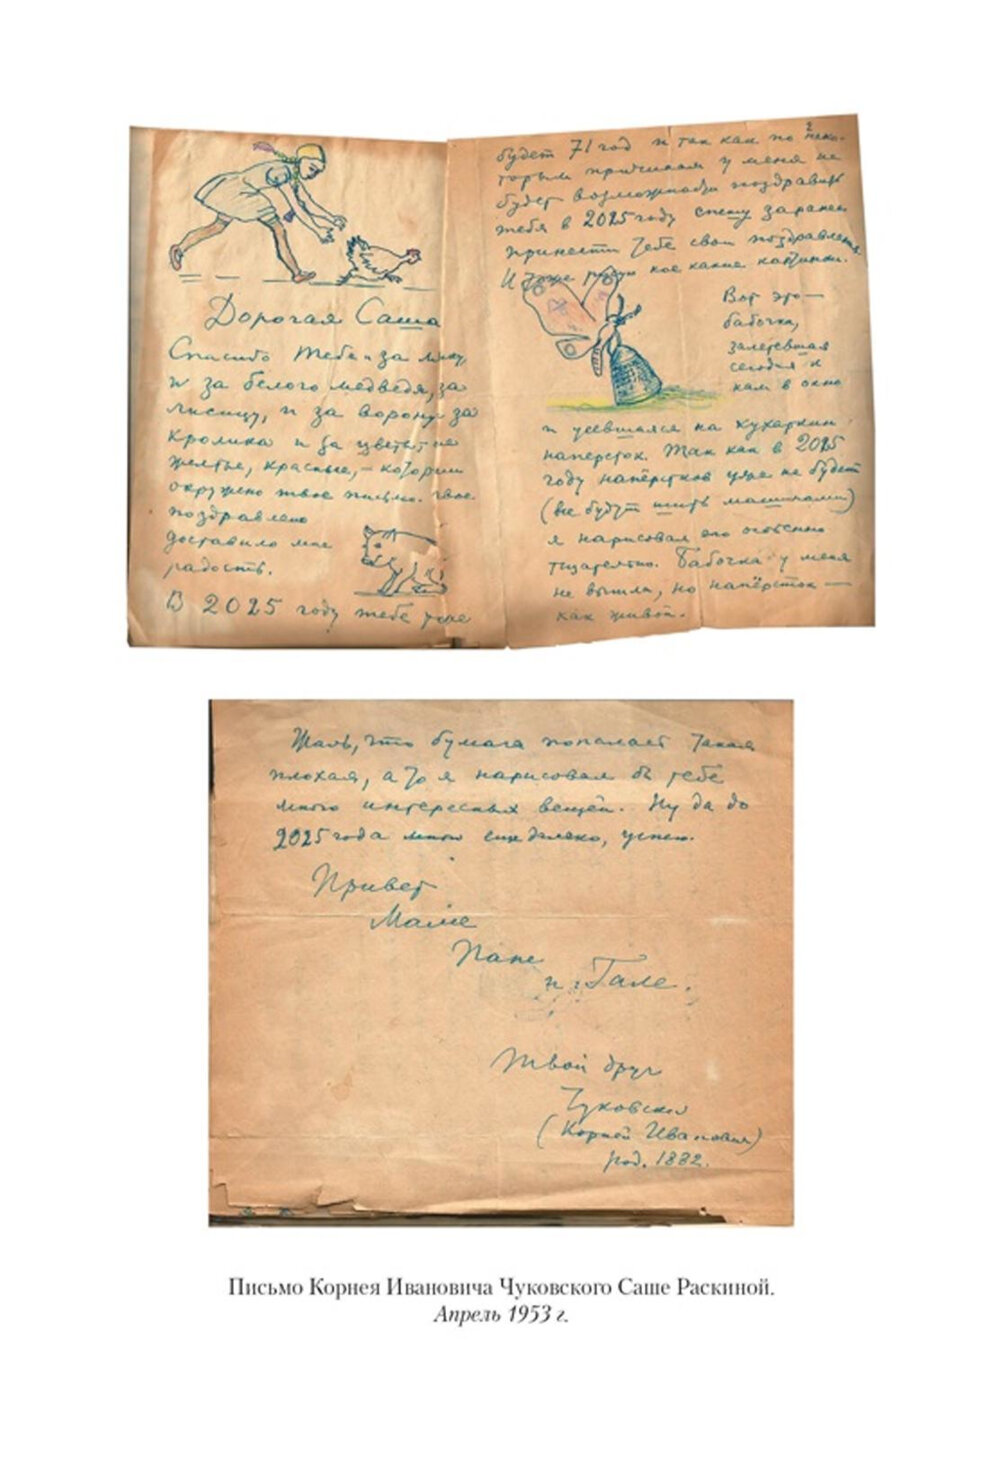 Дорогая Саша
Спасибо тебе и за лису,
и за белого медведя, за
лисицу, и за ворону за
кролика и за цветы, не
желтые, красные, – которыми
окружено твое письмо. Твое
поздравление
доставило мне
радость.
В 2025 году тебе уже
2
будет 71 год и так как по неко-
торым причинам у меня не
будет возможности поздравить
тебя в 2025 году спешу заранее
принести тебе свои поздравления
И тоже рисую кое какие картинки.
Вот это —
бабочка,
залетевшая
сегодня к
нам в окно
и усевшаяся на кухаркин
наперсток. Так как в 2025
году напёрстков уже не будет
(все будут шить машинами)
я нарисовал его особенно
тщательно. Бабочка у меня
не вышла, но напёрсток —
как живой.
Жаль, что бумага попалась такая
плохая, а то я нарисовал бы тебе
много интересных вещей. Ну да до
2025 года еще далеко, успею.
Привет
Маме
Папе
и Гале.
Твой друг
Чуковский
(Корней Иванович)
род. 1882.
Письмо Корнея Ивановича Чуковского Саше Раскиной.
Апрель 1953 г.